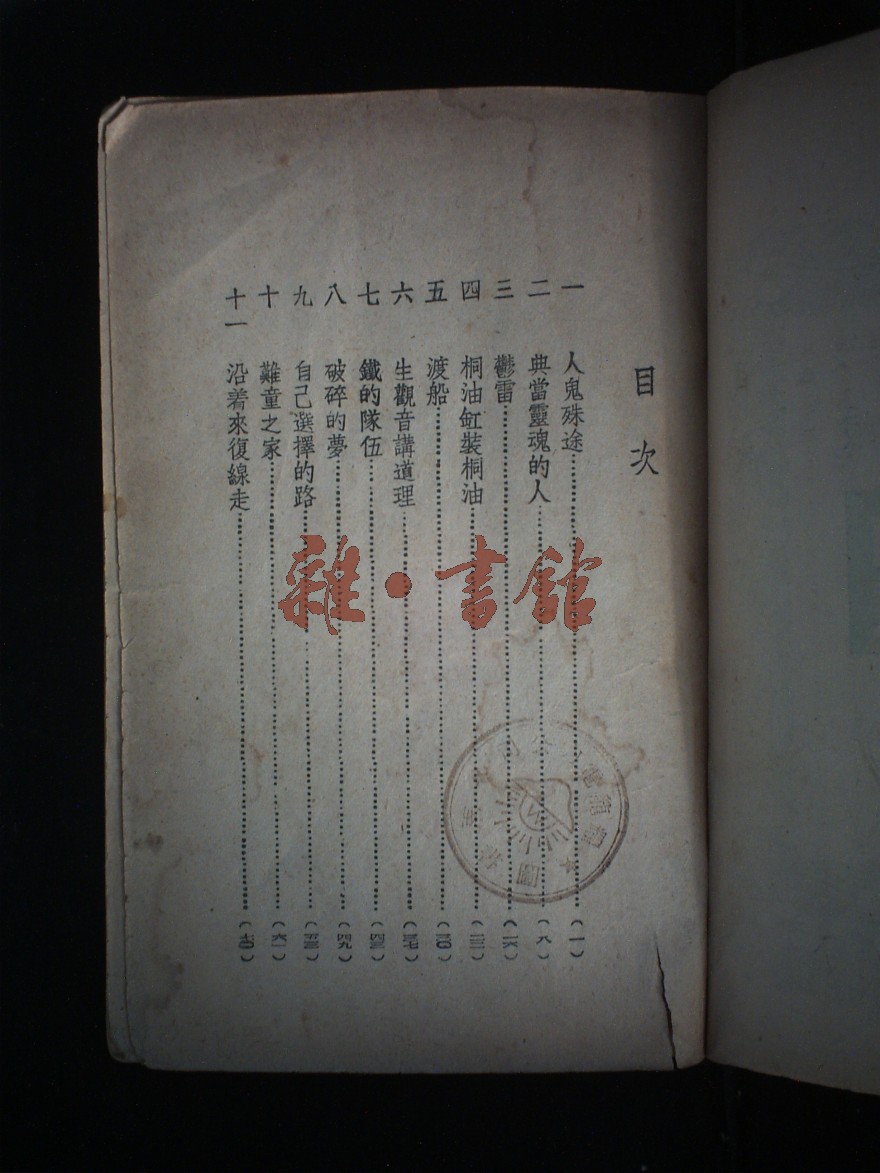 目次
一 人鬼殊途……(一)
二 典當靈魂的人……(八)
三 鬱雷……(一六)
四 桐油缸裝桐油……(二三)
五 渡船……(三〇)
六 生觀音講道理
七 鐵的隊伍
八 破碎的夢……(四九)
九 自己選擇的路
十 難童之家……(六一)
十一 沿着來復線走……(七〇)
雜·書館